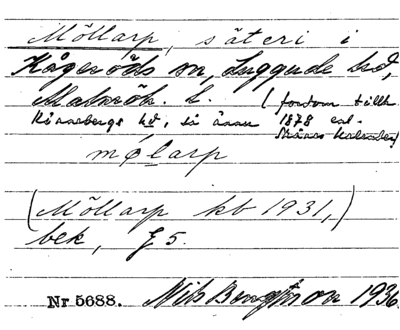 Möllarp, säteri i
Kågeröds sn, Luggude hd,
Malmöh. l. (fordom tillh.
Rönnebergs hd, så ännu 1878 enl.
Skånes Kalender)
mølarp
(Möllarp kb 1931,)
bek, f 5.
Nr 5688. Nils Bengtsson 1936.